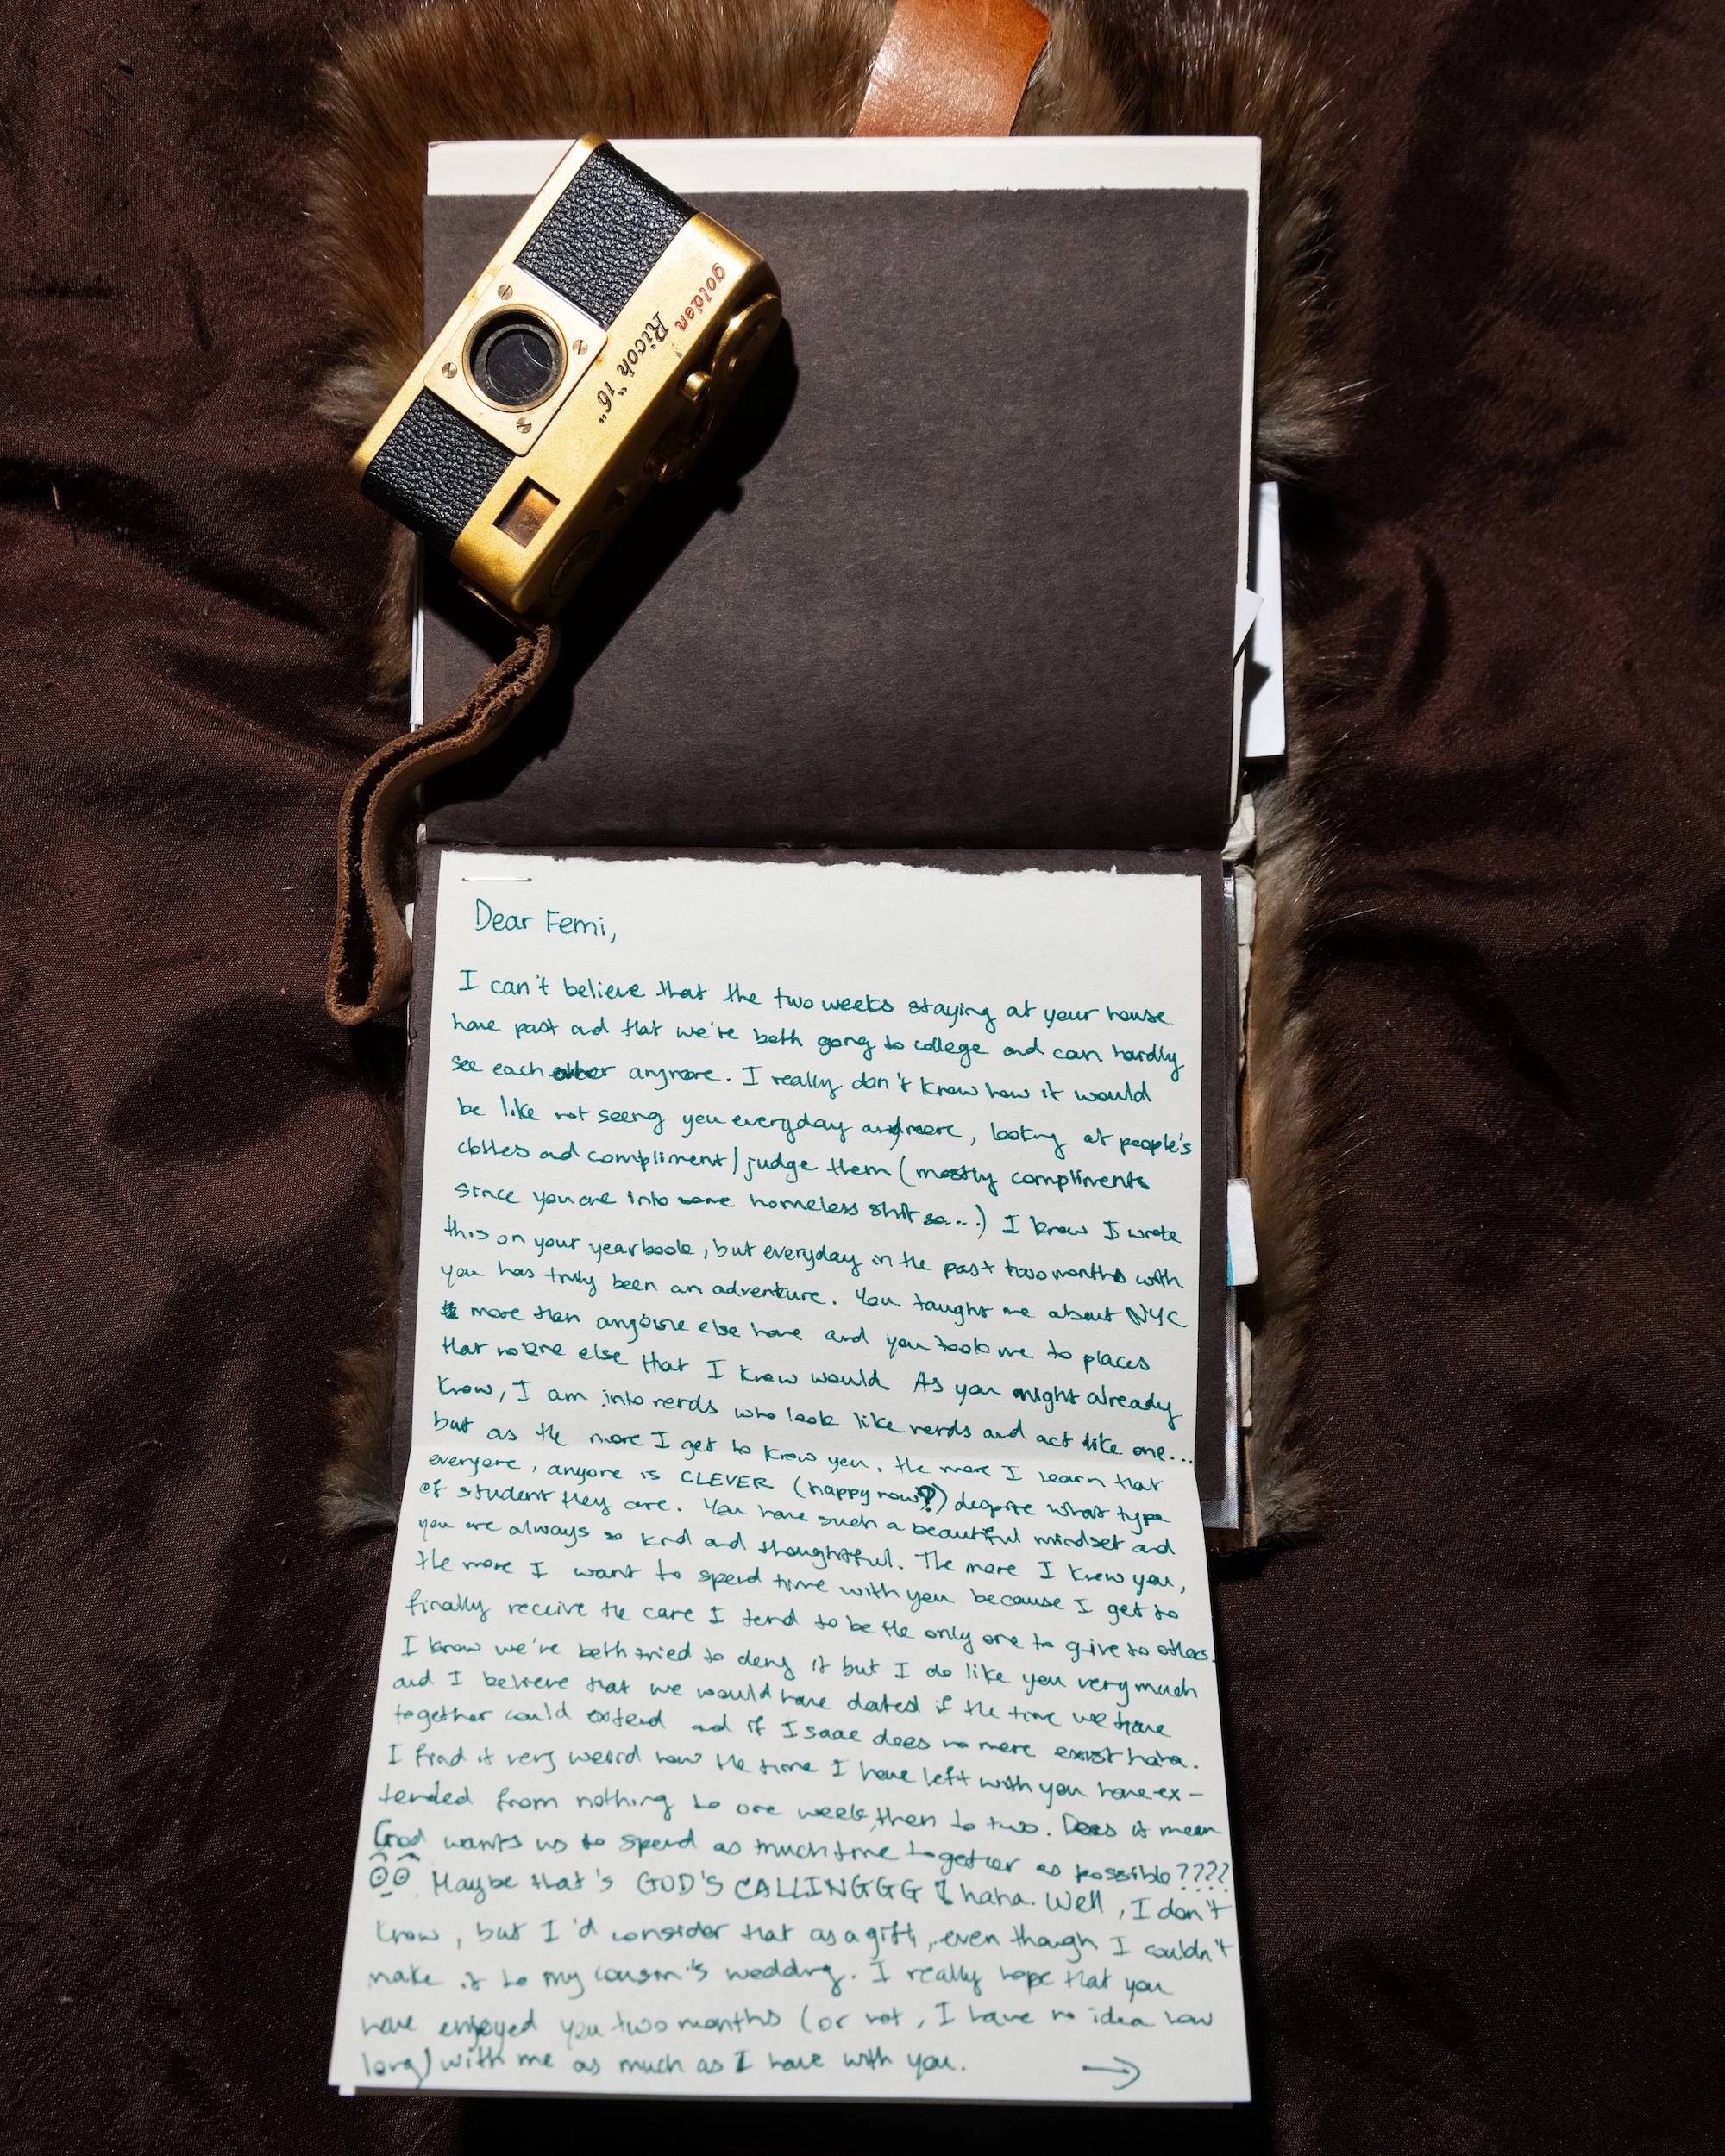 golden
Ricoh "16"
Dear Femi,
I can't believe that the two weeks staying at your house
have past and that we're both going to college and can hardly
see each other anymore. I really don't know how it would
be like not seeing you everyday anymore, looking at people's
clothes and compliment/judge them (mostly compliments
since you are into some homeless shit so...) I know I wrote
this on your yearbook, but everyday in the past two months with
you has truly been an adventure. You taught me about NYC
more than anyone else have and you took me to places
that no one else that I know would. As you might already
know, I am into nerds who look like nerds and act like one...
but as the more I get to know you, the more I learn that
everyone, anyone is CLEVER (happy now?) despite what type
of student they are. You have such a beautiful mindset and
you are always so kind and thoughtful. The more I know you,
the more I want to spend time with you because I get to
finally receive the care I tend to be the only one to give to others.
I know we've both tried to deny it but I do like you very much
and I believe that we would have dated if the time we have
together could extend and if Isaac does no more exist haha.
I find it very weird how the time I have left with you have ex-
tended from nothing to one week, then to two. Does it mean
God wants us to spend as much time together as possible????
Maybe that's GOD'S CALLINGGG! haha. Well, I don't
know, but I'd consider that as a gift, even though I couldn't
make it to my cousin's wedding. I really hope that you
have enjoyed you two months (or not, I have no idea how
long) with me as much as I have with you.
→